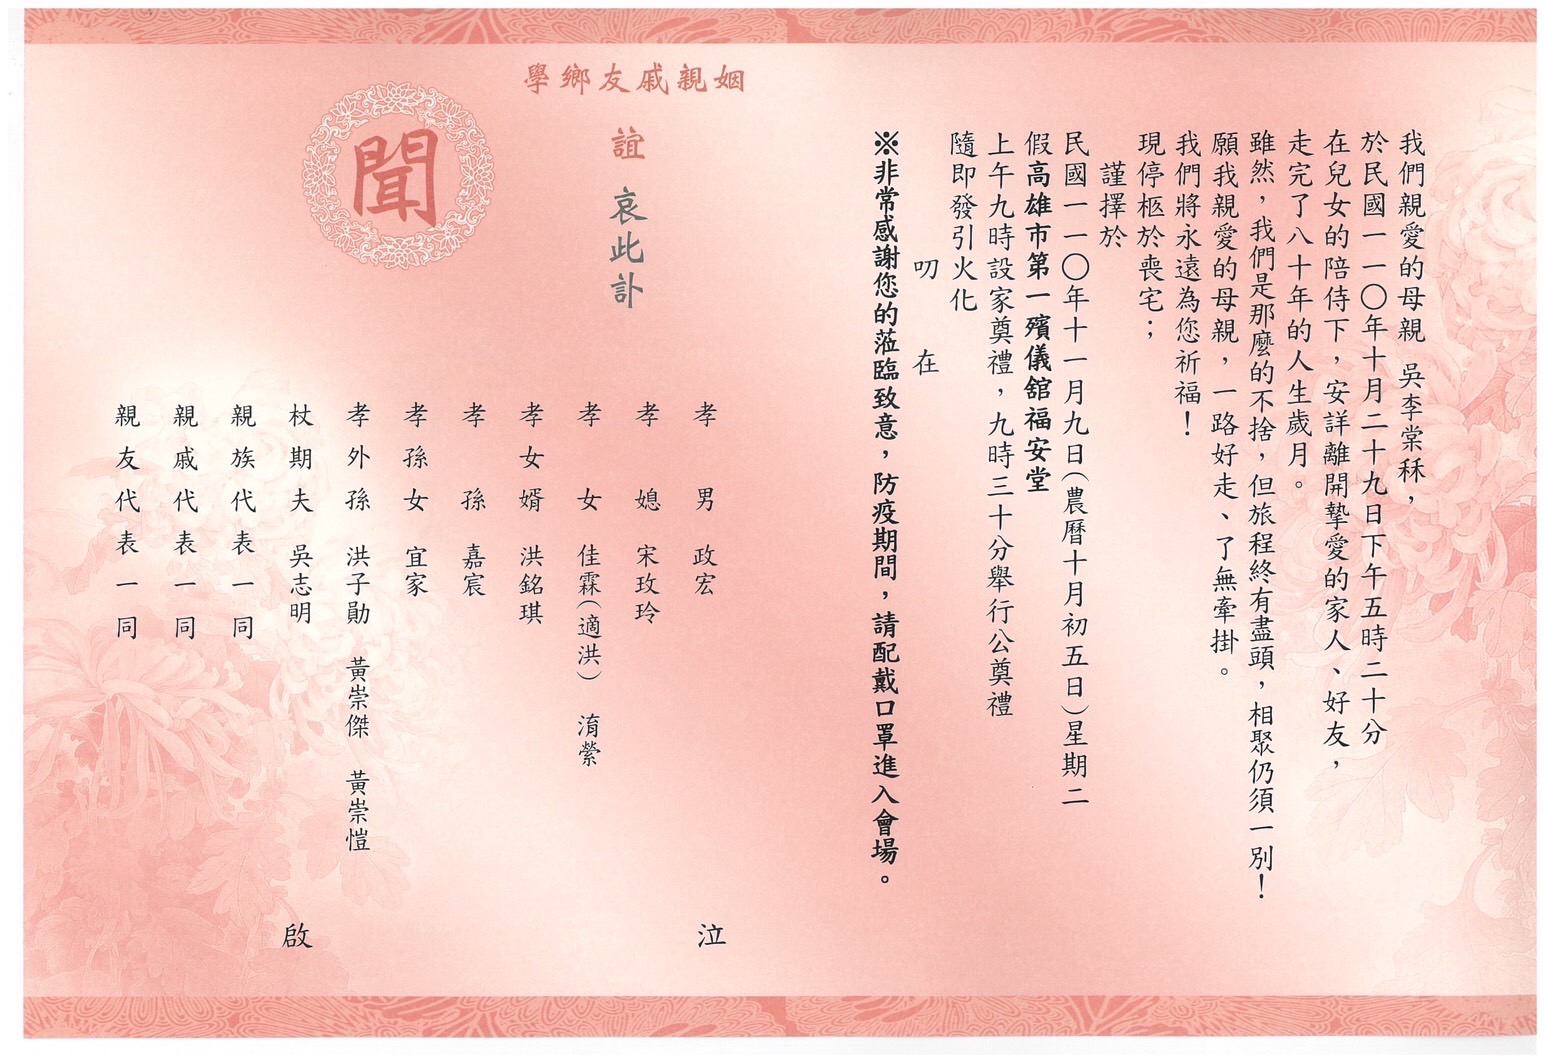 我們親愛的母親 吳李棠秝，
於民國一一〇年十月二十九日下午五時二十分
在兒女的陪侍下，安詳離開摯愛的家人、好友，
走完了八十年的人生歲月。
雖然，我們是那麼的不捨，但旅程終有盡頭，相聚仍須一別！
願我親愛的母親，一路好走、了無牽掛。
我們將永遠為您祈福！
現停柩於喪宅；
謹擇於
民國一一〇年十一月九日(農曆十月初五日)星期二
假高雄市第一殯儀舘福安堂
上午九時設家奠禮，九時三十分舉行公奠禮
隨即發引火化
叨 在
※非常感謝您的蒞臨致意，防疫期間，請配戴口罩進入會場。
姻親戚友鄉學
誼 哀此訃
聞
孝 男 政宏
孝 媳 宋玫玲
孝 女 佳霖(適洪) 淯縈
孝女婿 洪銘琪
孝 孫 嘉宸
孝孫女 宜家
孝外孫 洪子勛 黃崇傑 黃崇愷
杖期夫 吳志明
親族代表一同
親戚代表一同
親友代表一同
泣
啟